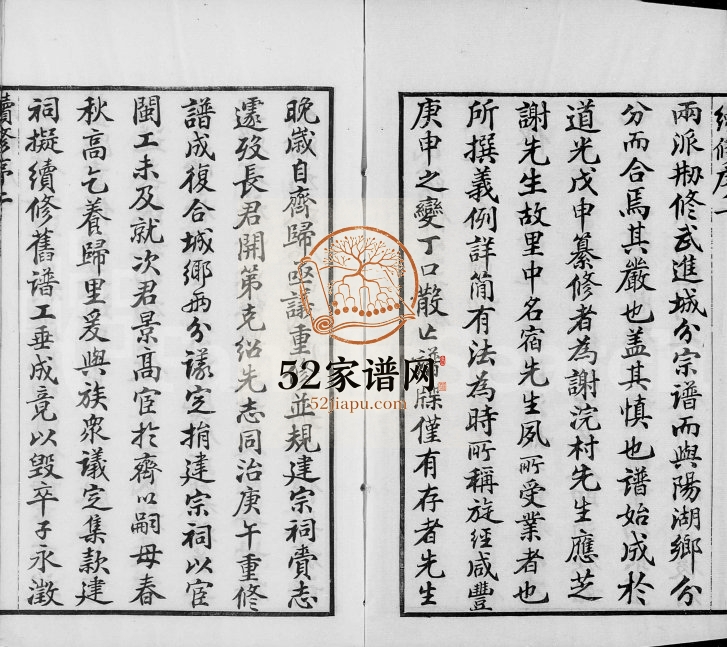 續修序
兩派刱修武進城分宗譜而與陽湖鄉分
分而合焉其嚴也盖其慎也譜始成於
道光戊申纂修者為謝浣村先生應芝
謝先生故里中名宿先生夙所受業者也
所撰義例詳簡有法為時所稱旋經咸豐
庚申之變丁口散亡譜牒僅有存者先生
晚歲自齊歸亟議重修並規建宗祠賫志
遽歿長君開第克紹先志同治庚午重修
譜成復合城鄉兩分議定捐建宗祠以宦
閩工未及就次君景高宦於齊以嗣母春
秋高乞養歸里爰與族衆議定集款建
祠擬續修舊譜工垂成竟以毀卒子永澂
續修序二
52家谱网
52jiapu.com